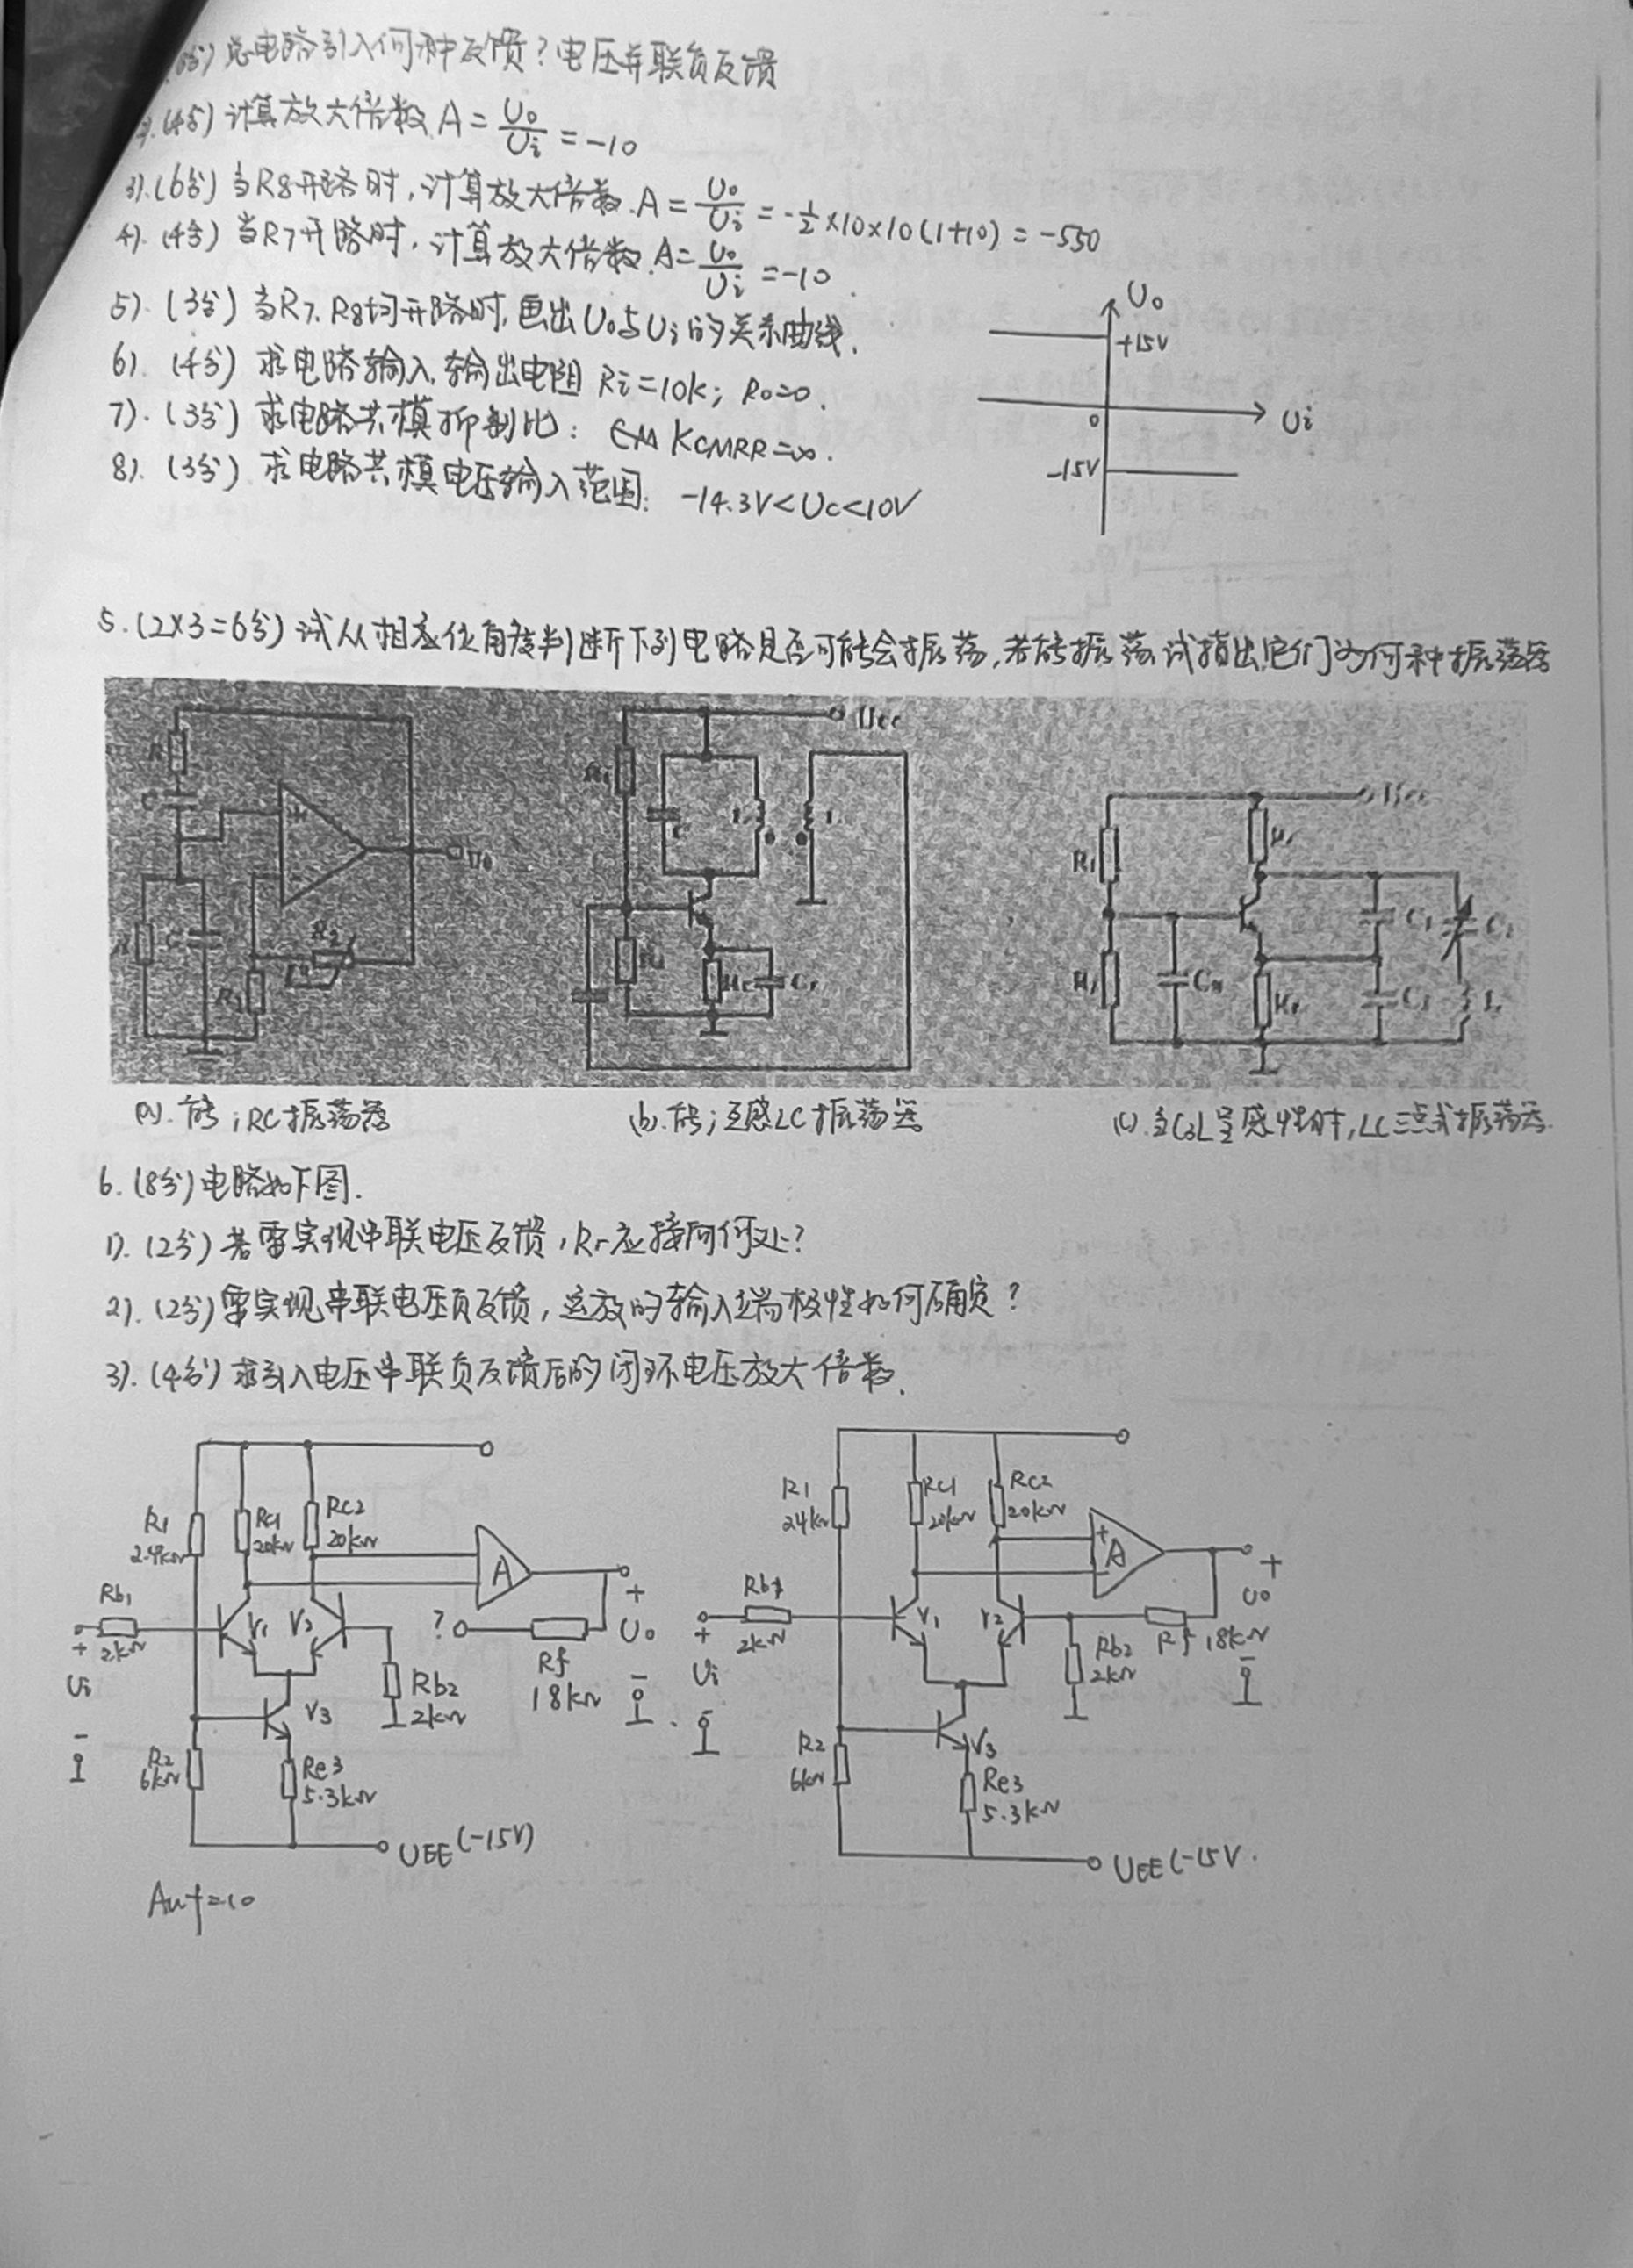 分) 总电路引入何种反馈? 电压并联负反馈
2).(4分) 计算放大倍数 A = Uo/Ui = -10
3).(6分) 当R8开路时, 计算放大倍数. A = Uo/Ui = -½×10×10(1+10) = -550
4). (4分) 当R7开路时, 计算放大倍数. A = Uo/Ui = -10
5). (3分) 当R7. R8均开路时, 画出Uo与Ui的关系曲线.
6). (4分) 求电路输入, 输出电阻 Ri=10k; Ro=0.
7). (3分) 求电路共模抑制比: KCMRR=∞.
8). (3分) 求电路共模电压输入范围: -14.3V<Uc<10V
Uo
+15V
0
Ui
-15V
5. (2×3=6分) 试从相应位角度判断下列电路是否可能会振荡, 若能振荡, 试指出它们为何种振荡器
R
C
+
-
Uo
R
C
R2
R1
Ucc
C
L
Re
Ce
Ucc
R1
C1
C3
C2
L
(a). 能; RC振荡器
(b). 能; 互感LC振荡器
(c). 当C3L呈感性时, LC三点式振荡器.
6. (8分) 电路如下图.
1). (2分) 若需实现串联电压反馈, Rf应接向何处?
2). (2分) 需实现串联电压负反馈, 运放的输入端极性如何确定?
3). (4分) 求引入电压串联负反馈后的闭环电压放大倍数.
R1
2.4kΩ
Rc1
20kΩ
Rc2
20kΩ
A
Rb1
2kΩ
V1
V2
?
Rf
18kΩ
+
Uo
-
+
Ui
-
Rb2
2kΩ
V3
R2
6kΩ
Re3
5.3kΩ
UEE (-15V)
R1
24kΩ
Rc1
20kΩ
Rc2
20kΩ
+
A
-
Rb1
2kΩ
V1
V2
Rb2
2kΩ
Rf 18kΩ
+
Uo
-
+
Ui
-
V3
R2
6kΩ
Re3
5.3kΩ
UEE (-15V.
Auf=10